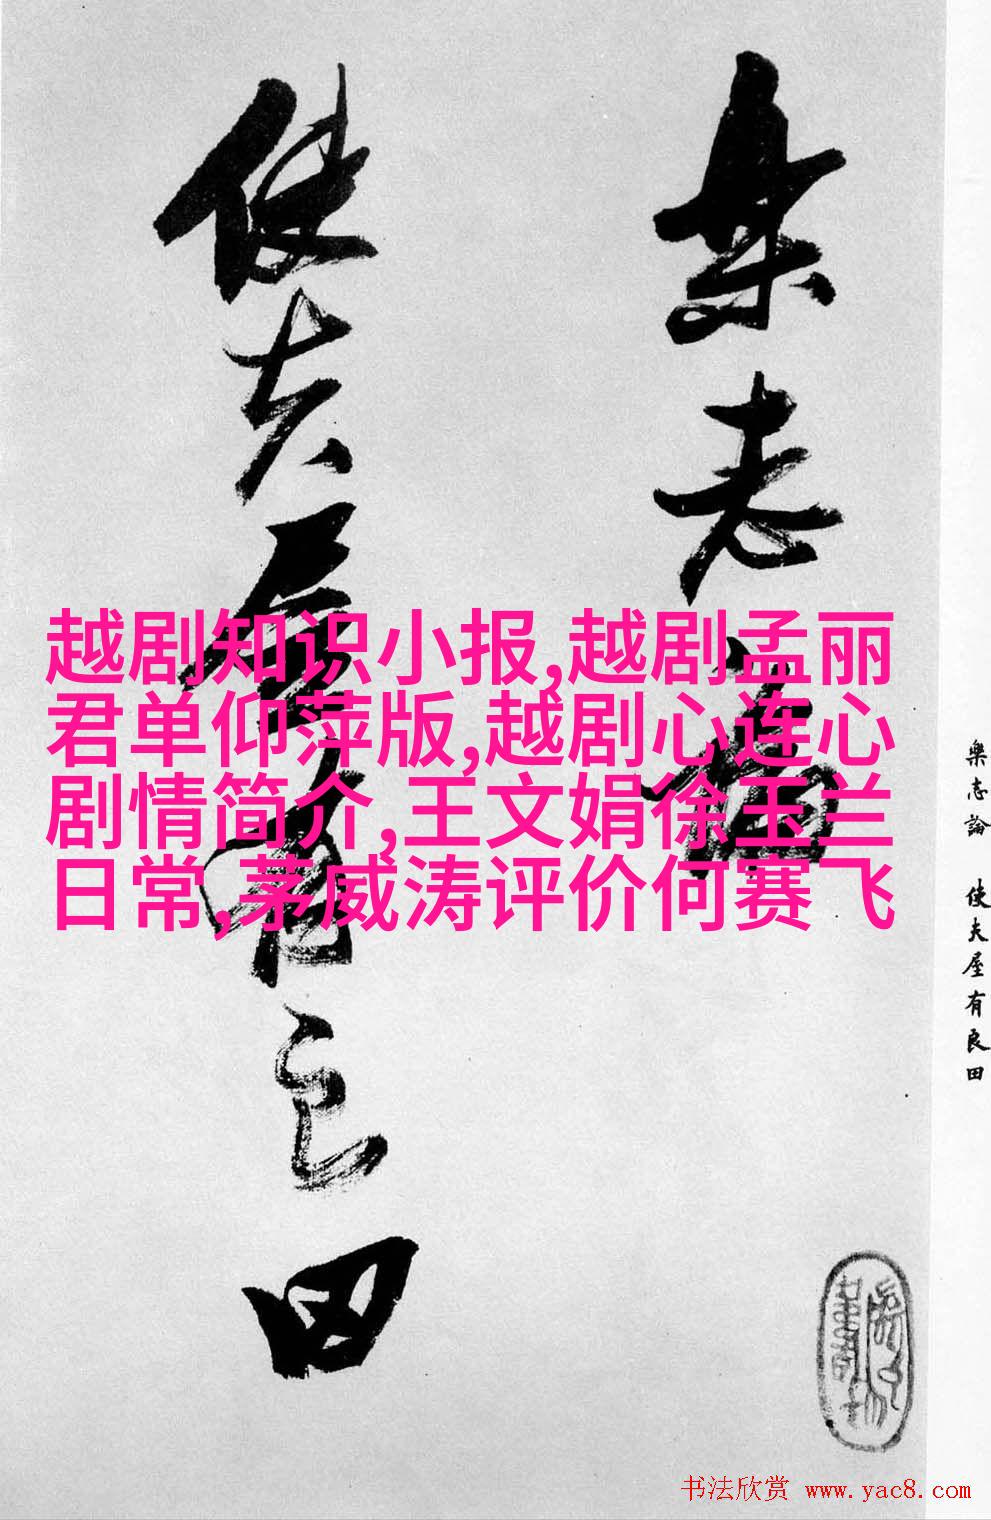 樂志論
使夫屋有良田
越剧知识小报,越剧孟丽
君单仰萍版,越剧心连心
剧情简介,王文娟徐玉兰
日常,茅威涛评价何赛飞
樂志論 使夫屋有良田
书法欣赏 www.yac8.com